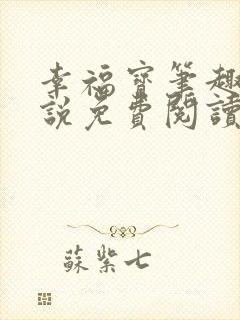 幸福寶筆趣
說免費閱讀
蘇柴七